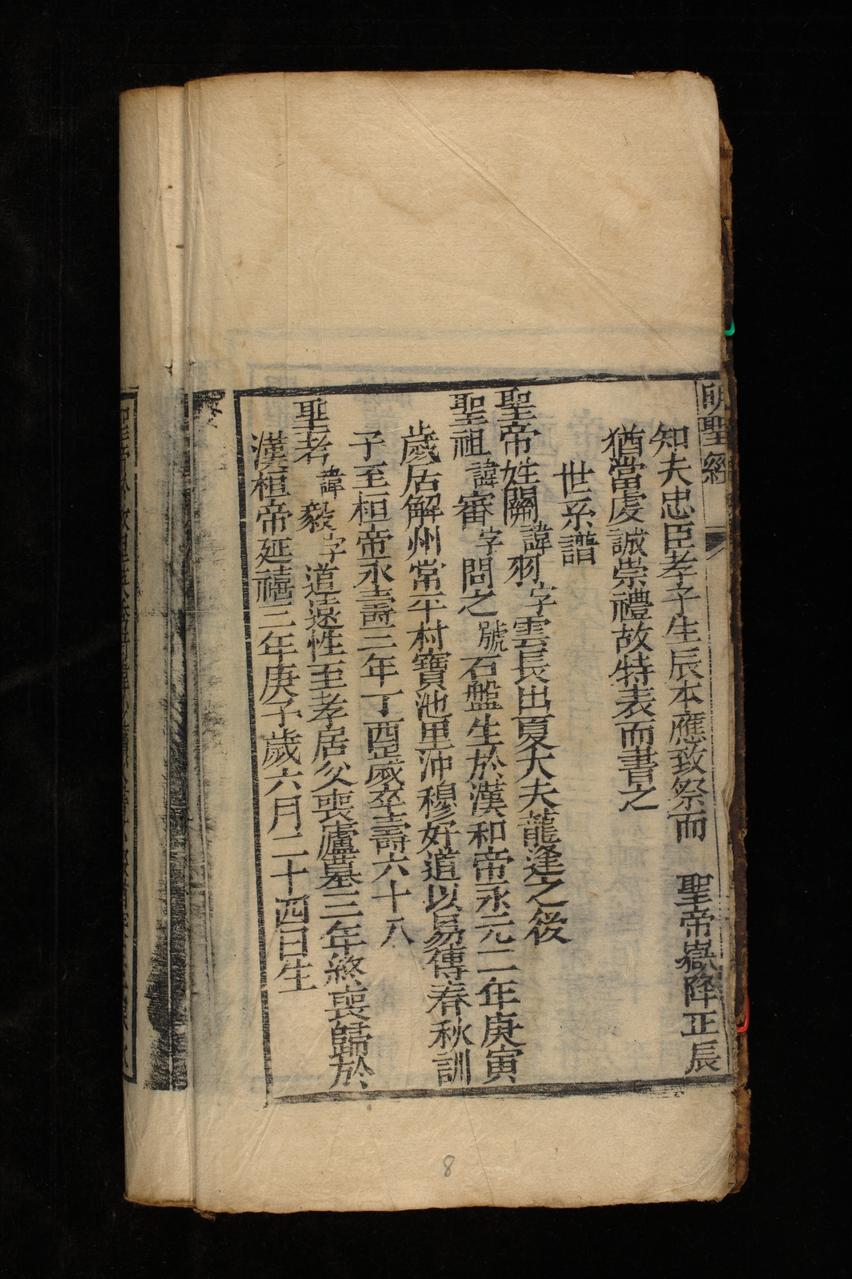 明聖經
知夫忠臣孝子生辰本應致祭而　聖帝嶽降正辰
猶當虔誠崇禮故特表而書之
世系譜
聖帝姓關諱羽字雲長出夏大夫龍逄之後
聖祖諱審字問之號石盤生於漢和帝永元二年庚寅
歲居解州常平村寶池里沖穆好道以易傳春秋訓
子至桓帝永壽三年丁酉歲卒壽六十八
聖考諱毅字道遠性至孝居父喪廬墓三年終喪歸於
漢桓帝延禧三年庚子歲六月二十四日生
8